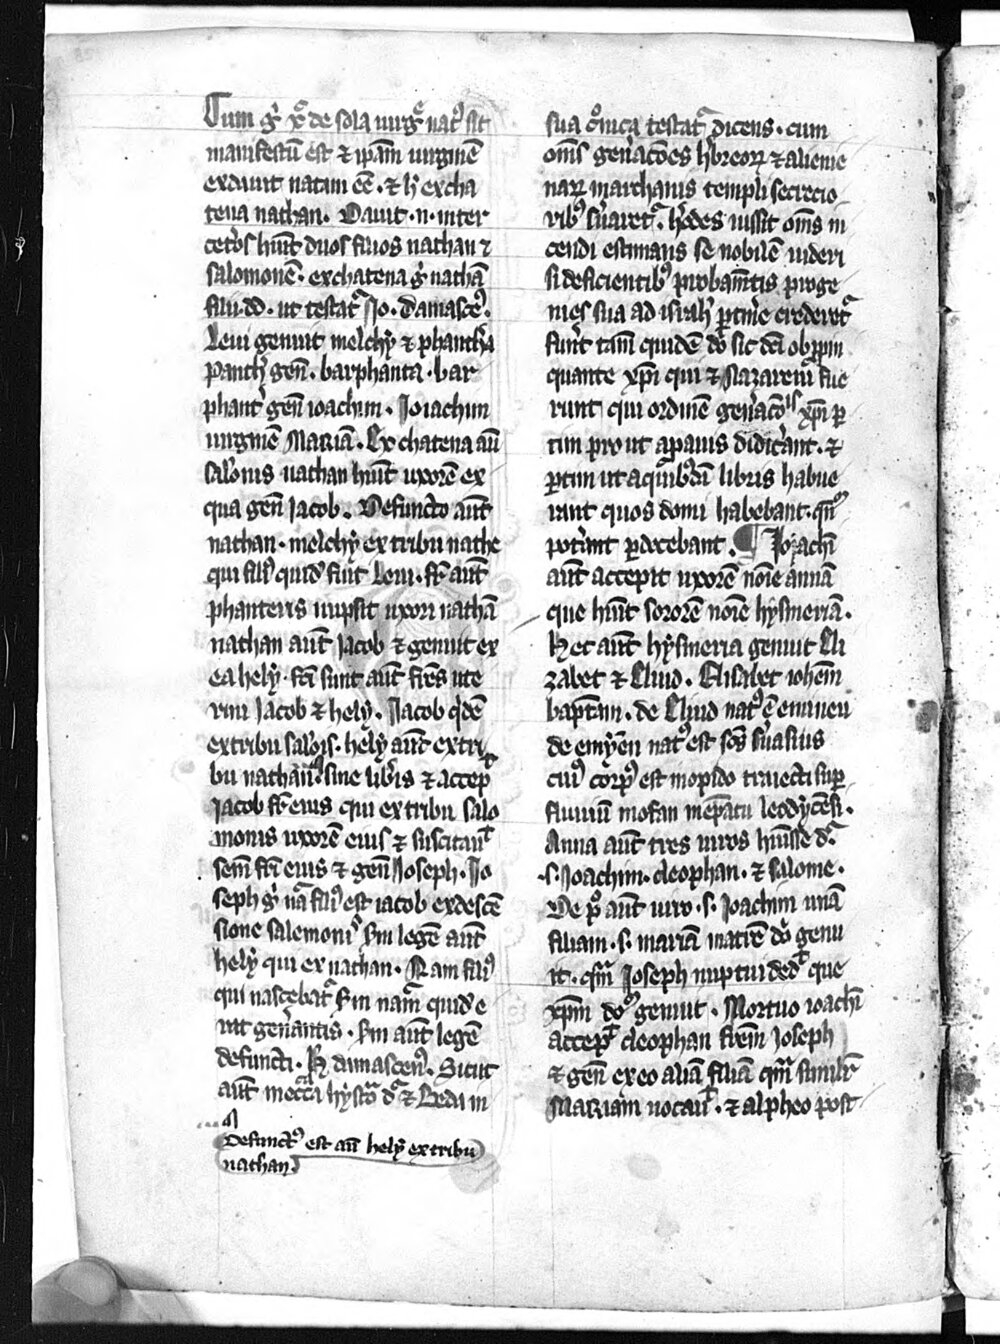 Cum gͥ xp̄c de sola uirgīe natꝰ sit
manifestū est ⁊ ip̄am uirginē
ex dauit natam eē. ⁊ hͨ ex cha
tena nathan. Dauit .n. inter
ceteros hūit duos filios nathan ⁊
salomonē. ex chatena gͥ nathā
filii dd. ut testatᷓ Jo. damascēꝰ.
Leui genuit melchy ⁊ phanthͣ
panthͬ geñ. barphanta. bar
phantͬ geñ ioachim. Joiachim
uirginē Mariā. Ex chatena aū
salōnis nathan hūit uxorē ex
qua geñ Jacob. Defuncto aūt
nathan. melchy ex tribu nathā
qui filiꝰ quidē fuit Leui. fr̄ aūt
phanteris nupsit uxori nathā
nathan aūt Jacob ⁊ genuit ex
ea hely. fc̄i sunt aūt fr̄es ute
rini Jacob ⁊ hely. Jacob qͥdē
ex tribu salōis. hely aūt ex tri
bu nathan. sine libͬis ⁊ accepͭ
Jacob fr̄ eius qui ex tribu salo
monis uxorē eius ⁊ suscitauͭ
semē fr̄i eius ⁊ geñ Joseph. Jo
seph gͥ nā filiꝰ est iacob ex descē
sione salemonis. Scdm legē aūt
hely qui ex nathan. Nam filiꝰ
qui nascebatᷓ scdm nām quidē e
rat gen̄antis. scdm aūt legē
defuncti. hͨ damascenꝰ. Sicut
aūt in eccͣa hystoͣ dͬ ⁊ Beda in
Defunctꝰ est aūt hely ex tribu
nathan
sua cͦnica testatᷓ dicens. cum
om̄s gen̄acōes hebreoꝝ ⁊ alieniē
naꝝ in archanis templi secrecio
ribꝰ seruaretᷓ. hͬdes iussit om̄s in
cendi estimans se nobilē uideri
si deficientibꝰ probam̄tis proge
nies sua ad isrl̄ꝫ pertinͬe crederetᷓ
fuerūt tam̄ quidē dō sic dc̄i ob ppin
quante xp̄i qui ⁊ Nazareni fue
runt qui ordinē gen̄acōis xp̄i ꝑ
tim prout ap auis didicerant. ⁊
ꝑtim ut a qͥbdā libris habue
rant quos domi habebant. qͣntꝰ
potͬint ꝑdocebant. ¶ Joiachī
aūt accepit uxorē noīe annā
que hūit sororē noīe hysmeriā.
Hec aūt hysmeria genuit Eli
zabet ⁊ Eliud. Elisabet iohēm
baptam. de Eliud natꝰ ē eminen
de emynē natꝰ est scūs seruasius
cuiꝰ corpꝰ est in opido traiecti suꝑ
fluuiū mosan in epatu leodycēsi.
Anna aūt tres uiros hūisse dͬ
.s. Joachim. cleophan. ⁊ salome.
De pͦ aūt uiro .s. Joachim unā
filiam .s. mariā matrē dn̄i genu
it. qͣm Joseph nuptui dedͭ que
xp̄m dn̄m genuit. Mortuo ioachī
accepͭ cleophan frēm Joseph
⁊ geñ ex eo aliā filiā qͣm similͬ
Mariam uocauͭ. ⁊ alpheo post